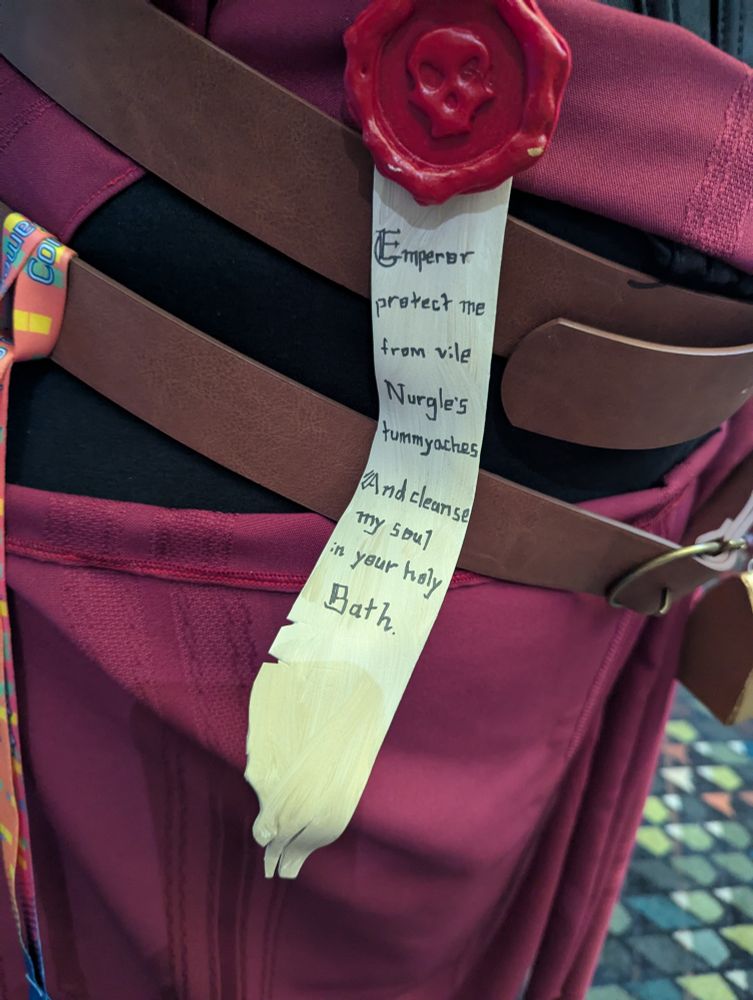 Emperor
protect me
from vile
Nurgle's
tummyaches
And cleanse
my soul
in your holy
Bath.